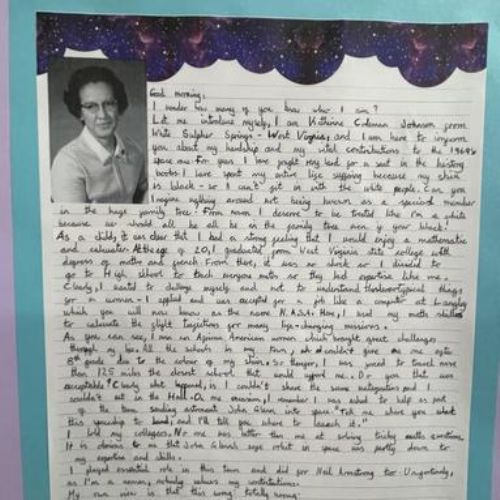 Good morning,
I wonder how many of you know who I am?
Let me introduce myself, I am Katherine Coleman Johnson from
White Sulpher Springs - West Virginia, and I am here to inform
you about my hardship and my vital contributions to the 1960's
space race. For years I have fought very hard for a seat in the history
books. I have spent my entire life suffering because my skin
is black - so I can't fit in with the white people. Can you
imagine walking around not being known as a special member
in the huge family tree. From now on I deserve to be treated like I'm a white
because we should all be all be in the family tree even if your black!
As a child, it was clear that I had a strong feeling that I would enjoy a mathematic
and calculator. At the age of 20, I graduated from West Virginia state college with
degrees of maths and french. From there, it was no shock so I decided to
go to High school to teach everyone maths so they had expertise like me.
Clearly, I wanted to challenge myself and not to understand the typical things
for a woman - I applied and was accepted for a job like a computer at Langley
which you will now know as the name N.A.S.A. Here, I used my math skills
to calculate the flight trajectories for many life-changing missions.
As you can see, I am an African American women which brought great challenges
through my life. All the schools in my town, couldn't have me after
8th grade due to the colour of my skin. So therefore, I was forced to travel more
than 125 miles the closest school that would accept me. Do you think that was
acceptable? Clearly what happened, is I couldn't share the same and I
couldn't eat in the Hall. On one occasion, I remember I was asked to help as part
of the team sending astronaut John Glenn into space. "Tell me where you want
this spaceship to land, and I'll tell you where to launch it."
I told my colleges. No one was better than me at solving tricky maths
It is obvious to me that John Glenn's orbit in space was partly down to
my expertise and skills.
I played essential role in this team and did for Neil Armstrong too. Unfortunately,
as I'm a woman, nobody values my contributions.
My own view is that this wrong! totally wrong